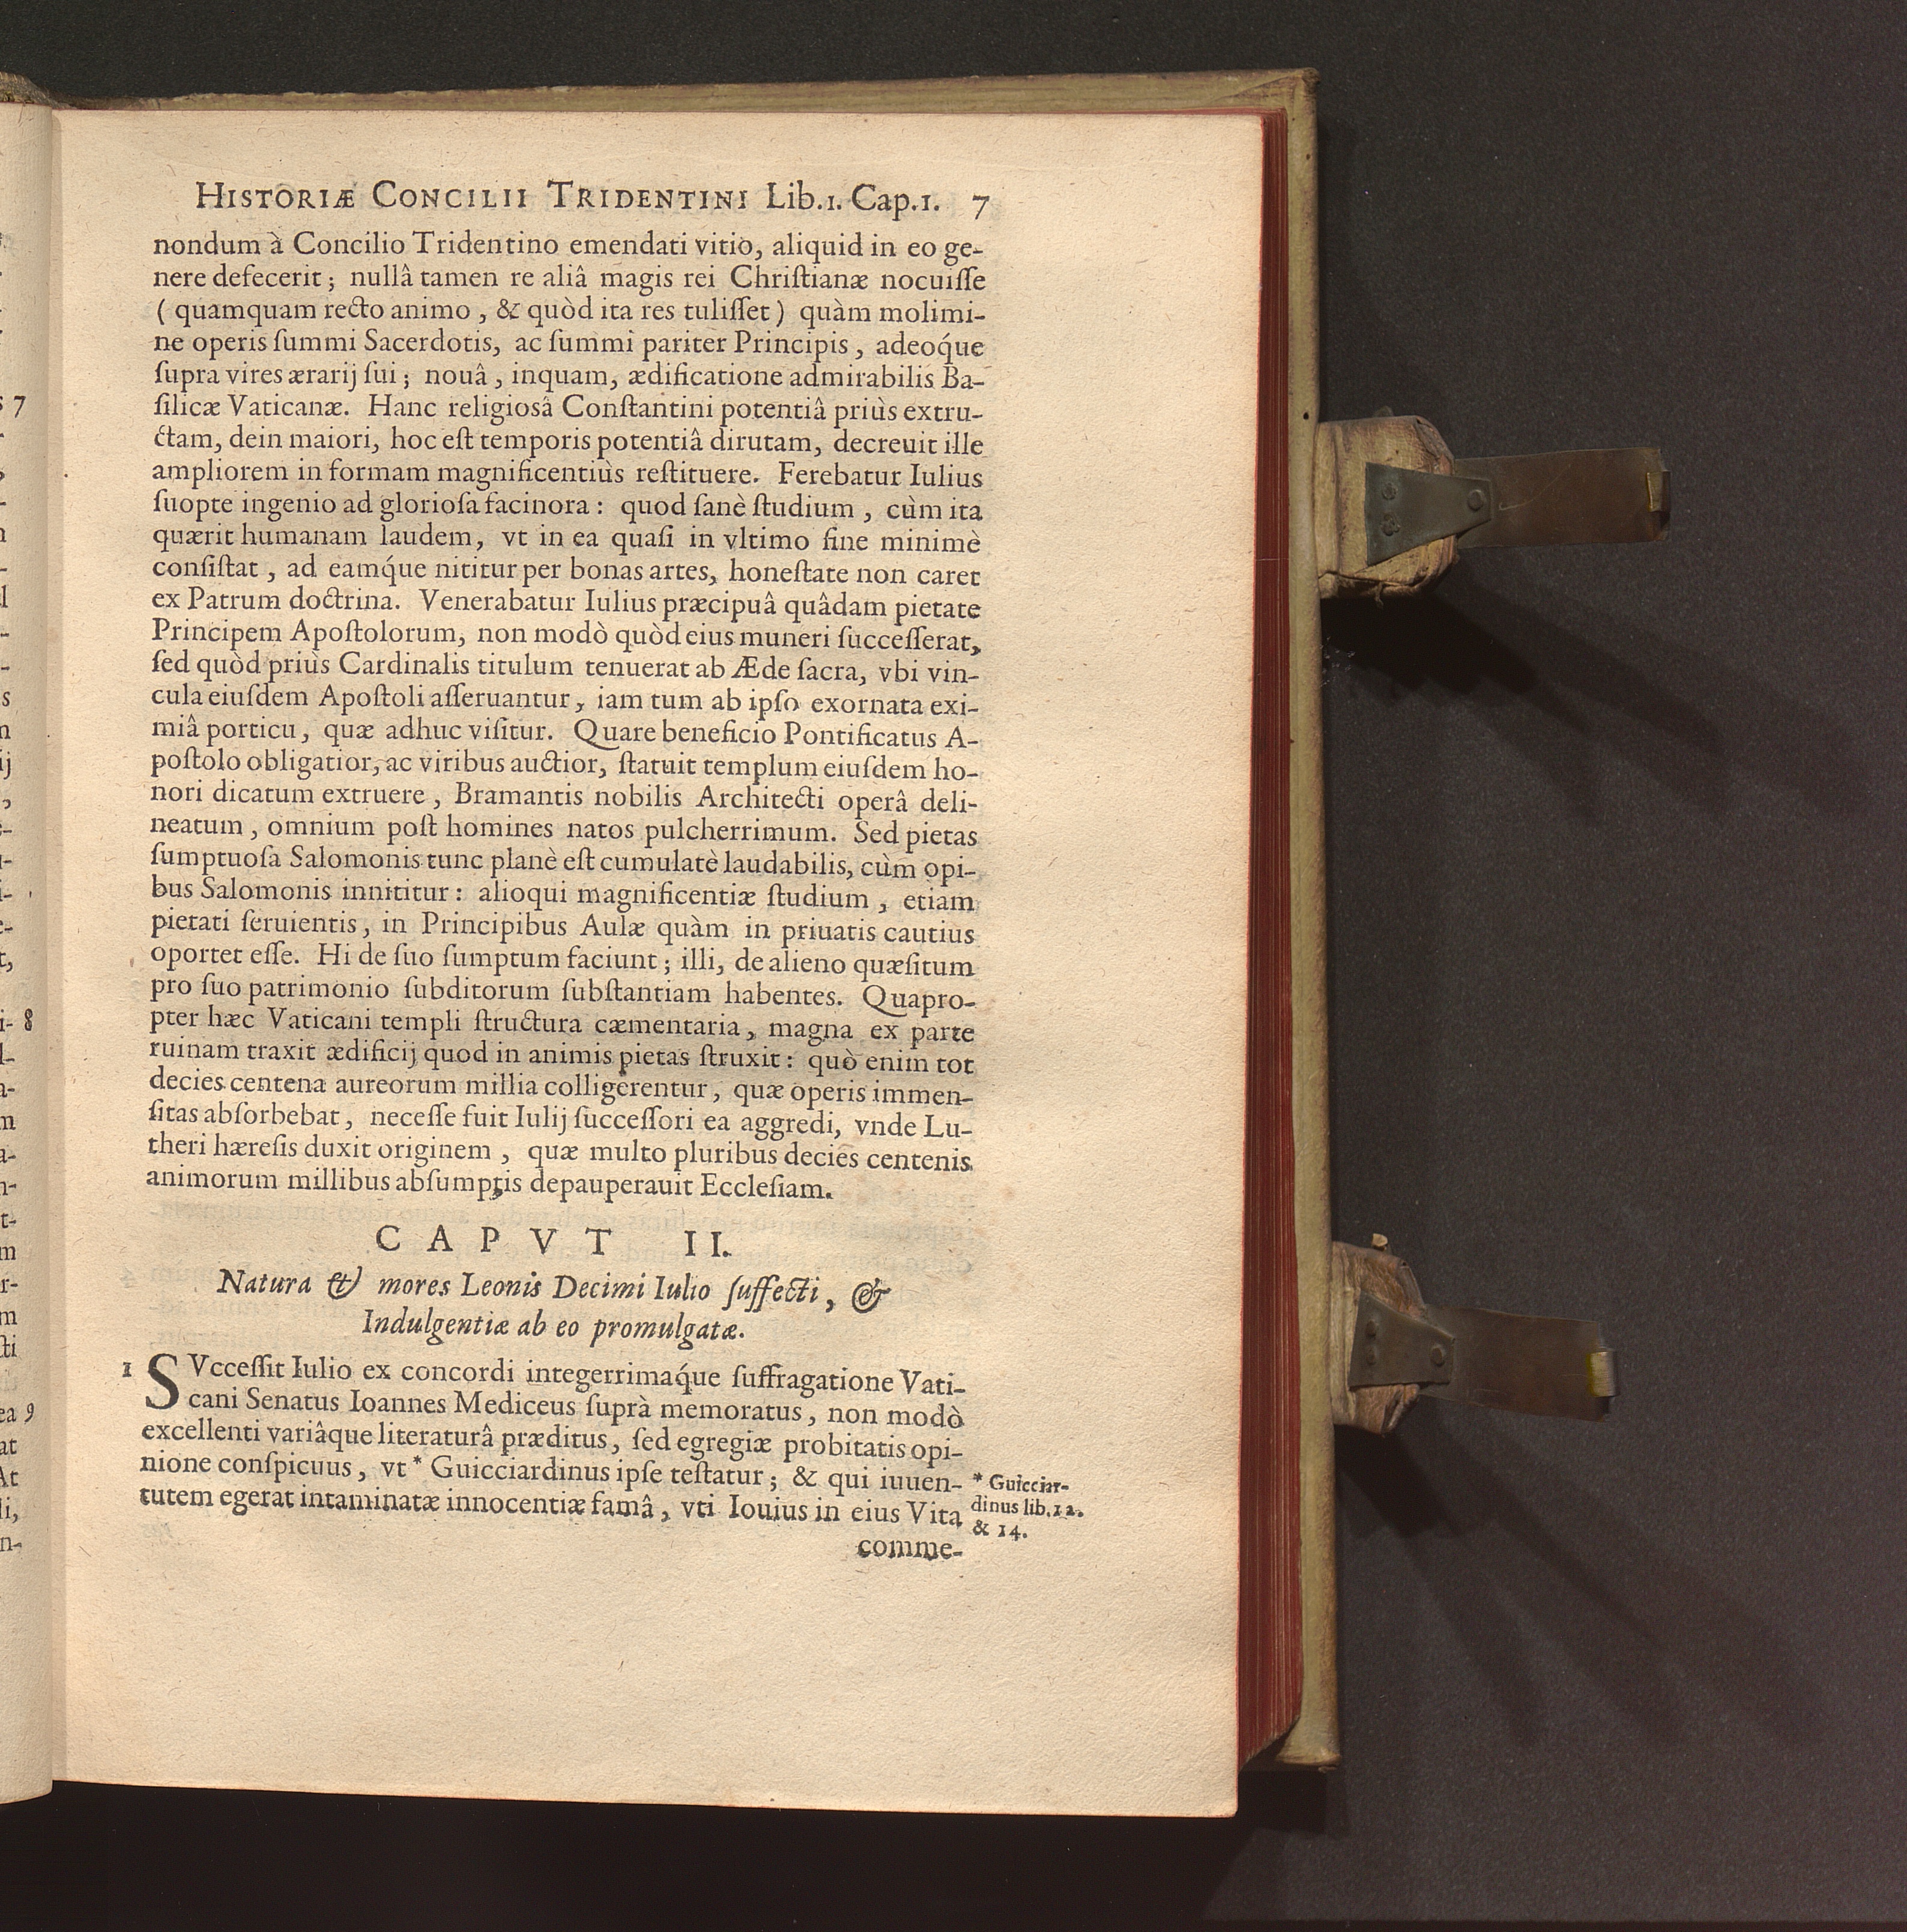 HISTORIÆ CONCILII TRIDENTINI Lib.1. Cap.1. 7
nondum à Concilio Tridentino emendati vitio, aliquid in eo ge-
nere defecerit; nullâ tamen re aliâ magis rei Chriſtianæ nocuiſſe
(quamquam recto animo, & quòd ita res tuliſſet) quàm molimi-
ne operis ſummi Sacerdotis, ac ſummi pariter Principis, adeóque
ſupra vires ærarij ſui; nouâ, inquam, ædificatione admirabilis Ba-
ſilicæ Vaticanæ. Hanc religiosâ Conſtantini potentiâ priùs extru-
ctam, dein maiori, hoc eſt temporis potentiâ dirutam, decreuit ille
ampliorem in formam magnificentiùs reſtituere. Ferebatur Iulius
ſuopte ingenio ad glorioſa facinora: quod ſanè ſtudium, cùm ita
quærit humanam laudem, vt in ea quaſi in vltimo fine minimè
conſiſtat, ad eamque nititur per bonas artes, honeſtate non caret
ex Patrum doctrina. Venerabatur Iulius præcipuâ quâdam pietate
Principem Apoſtolorum, non modò quòd eius muneri ſucceſſerat,
ſed quòd priùs Cardinalis titulum tenuerat ab Æde ſacra, vbi vin-
cula eiuſdem Apoſtoli aſſeruantur, iam tum ab ipſo exornata exi-
miâ porticu, quæ adhuc viſitur. Quare beneficio Pontificatus A-
poſtolo obligatior, ac viribus auctior, ſtatuit templum eiuſdem ho-
nori dicatum extruere, Bramantis nobilis Architecti operâ deli-
neatum, omnium poſt homines natos pulcherrimum. Sed pietas
ſumptuoſa Salomonis tunc planè eſt cumulatè laudabilis, cùm opi-
bus Salomonis innititur: alioqui magnificentiæ ſtudium, etiam
pietati ſeruientis, in Principibus Aulæ quàm in priuatis cautius
oportet eſſe. Hi de ſuo ſumptum faciunt; illi, de alieno quæſitum
pro ſuo patrimonio ſubditorum ſubſtantiam habentes. Quapro-
pter hæc Vaticani templi ſtructura cæmentaria, magna ex parte
ruinam traxit ædificij quod in animis pietas ſtruxit: quò enim tot
decies centena aureorum millia colligerentur, quæ operis immen-
ſitas abſorbebat, neceſſe fuit Iulij ſucceſſori ea aggredi, vnde Lu-
theri hæreſis duxit originem, quæ multo pluribus decies centenis
animorum millibus abſumptis depauperauit Eccleſiam.
CAPVT II.
Natura & mores Leonis Decimi Iulio ſuffecti, &
Indulgentiæ ab eo promulgatæ.
1 SVcceſſit Iulio ex concordi integerrimaque ſuffragatione Vati-
cani Senatus Ioannes Mediceus ſuprà memoratus, non modò
excellenti variâque literaturâ præditus, ſed egregiæ probitatis opi-
nione conſpicuus, vt * Guicciardinus ipſe teſtatur; & qui iuuen-
tutem egerat intaminatæ innocentiæ famâ, vti Iouius in eius Vita
* Guicciar-
dinus lib.12.
& 14.
comme-